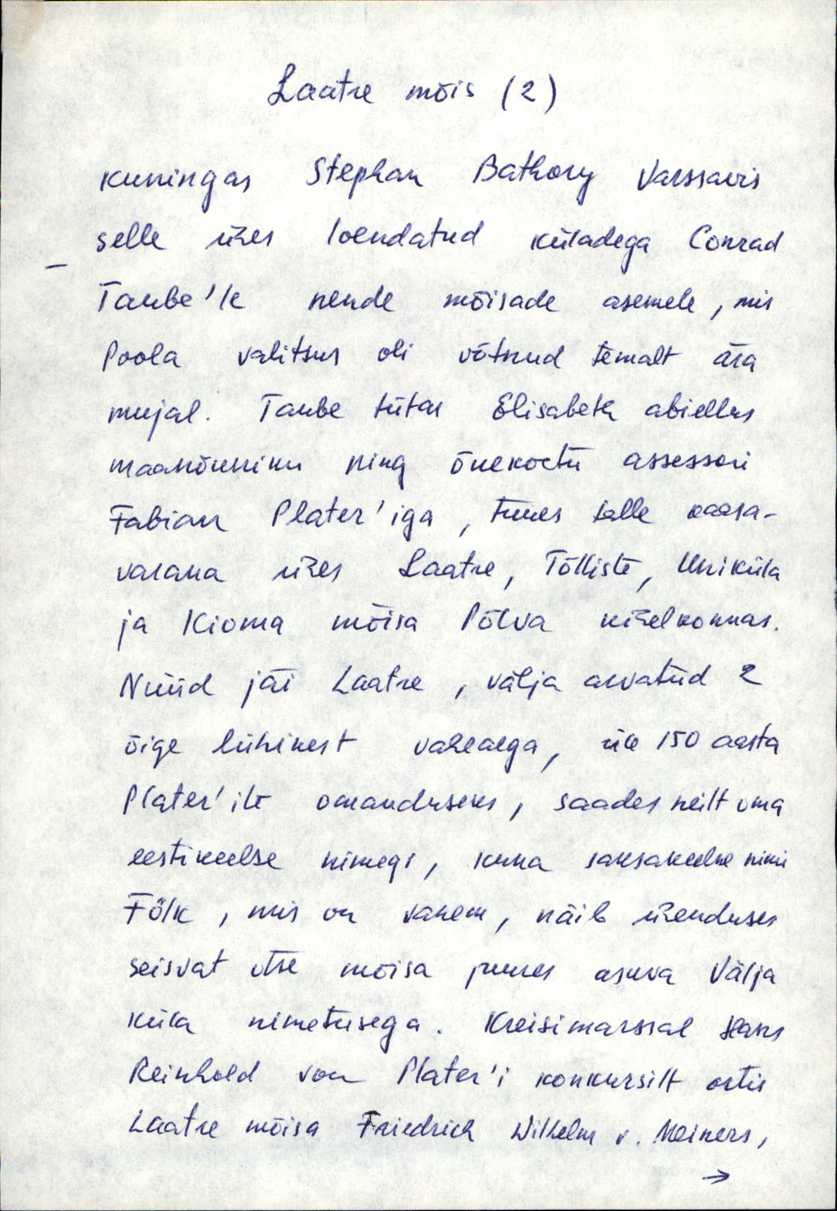 Laatre mõis (2)
kuningas Stephan Bathory Varssavis
selle ühes loendatud küladega Conrad
Taube'le nende mõisade asemele, mis
Poola valitsus oli võtnud temalt ära
mujal. Taube tütar Elisabeth abiellus
maanõuniku ning õuekohtu assessori
Fabian Plater'iga, tuues talle kaasa-
varana ühes Laatre, Tõlliste, Uniküla
ja Kioma mõisa Põlva kihelkonnas.
Nüüd jäi Laatre, välja arvatud 2
õige lühikest vaheaega, üle 150 aasta
Plater'ite omanduseks, saades neilt oma
eestikeelse nimegi, kuna saksakeelne nimi
Fölk, mis on vanem, näib ühenduses
seisvat otse mõisa juures asuva Välja
küla nimetusega. Kreisimarssal Hans
Reinhold von Plater'i konkursilt ostis
Laatre mõisa Friedrich Wilhelm v. Meiners,
→